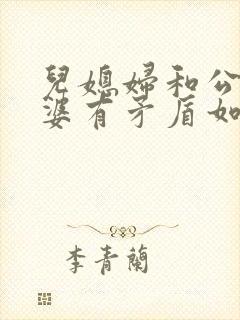 兒媳婦和公
婆有矛盾如
李青蘭